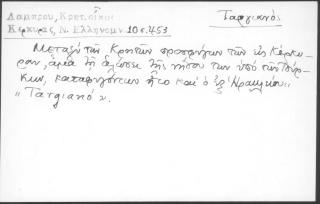 Λαμπρου, Κρητ. οἶκοι
Κερκυρας, Ν. Ελληνομν. 10 σ. 453
Ταργιανός
Μεταξὺ τῶν Κρητῶν προσφύγων τῶν εἰς Κέρκυ-
ραν, ἅμα τῇ ἁλώσει τῆς νήσου των ὑπὸ τῶν Τούρ-
κων, καταφυγόντων ἦτο καὶ ὁ ἐξ Ἡρακλείου
"Ταργιανός".